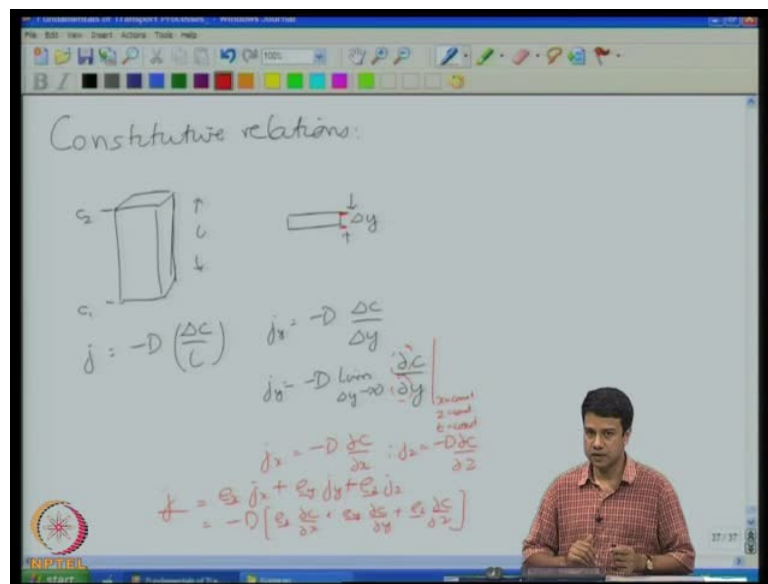 Fundamentals of Transport Processes - Windows Journal
File Edit View Insert Actions Tools Help
100%
B I
Constitutive relations:
C2
L
C1
Δy
j = -D (ΔC/L)
jy = -D ΔC/Δy
jy = -D lim Δy→0 ∂C/∂y | x=const z=const t=const
jx = -D ∂C/∂x ; jz = -D ∂C/∂z
j = ex jx + ey jy + ez jz
= -D [ex ∂C/∂x + ey ∂C/∂y + ez ∂C/∂z]
37/37
NPTEL
start
Fundamentals of Tra...